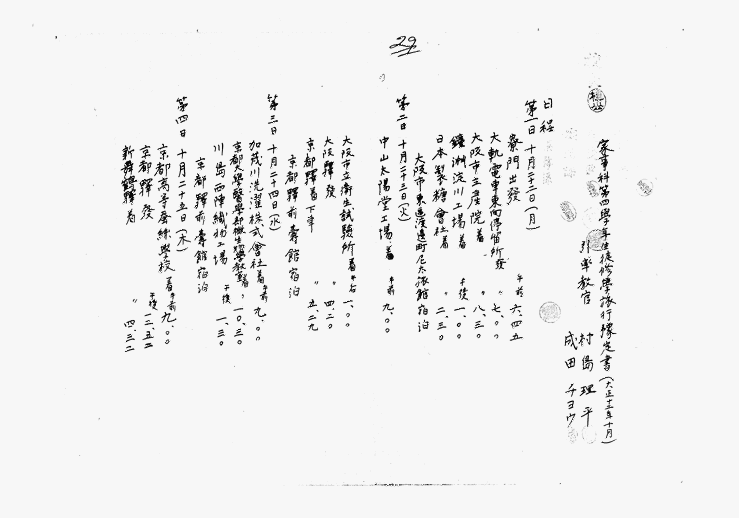 29
家事科第四學年生徒修學旅行豫定書(大正十三年十月)
引率教官 村島理平
成田チヨウ
日程
第一日 十月二十二日(月)
寮門出發 午前 六.四五
大軌電車東向停留所發 〃 七.〇〇
大阪市立産院着 〃 八.三〇
鐘淵淀川工場着 午後 一.〇〇
日本製糖會社着 〃 二.三〇
大阪市東區渡邊町尼太旅館宿泊
第二日 十月二十三日(火)
中山太陽堂工場着 午前 九.〇〇
大阪市立衛生試驗所着 午后 一.〇〇
大阪驛發 〃 四.二〇
京都驛着下車 〃 五.二九
京都驛前壽館宿泊
第三日 十月二十四日(水)
加茂川洗濯株式會社着 午前 九.〇〇
京都大學醫學部微生物學教室着 〃 一〇.三〇
川島西陣織物工場 午後 一.三〇
京都驛前壽館宿泊
第四日 十月二十五日(木)
京都高等蠶絲學校着 午前 九.〇〇
京都驛發 午後 一二.五二
新舞鶴驛着 〃 四.三二